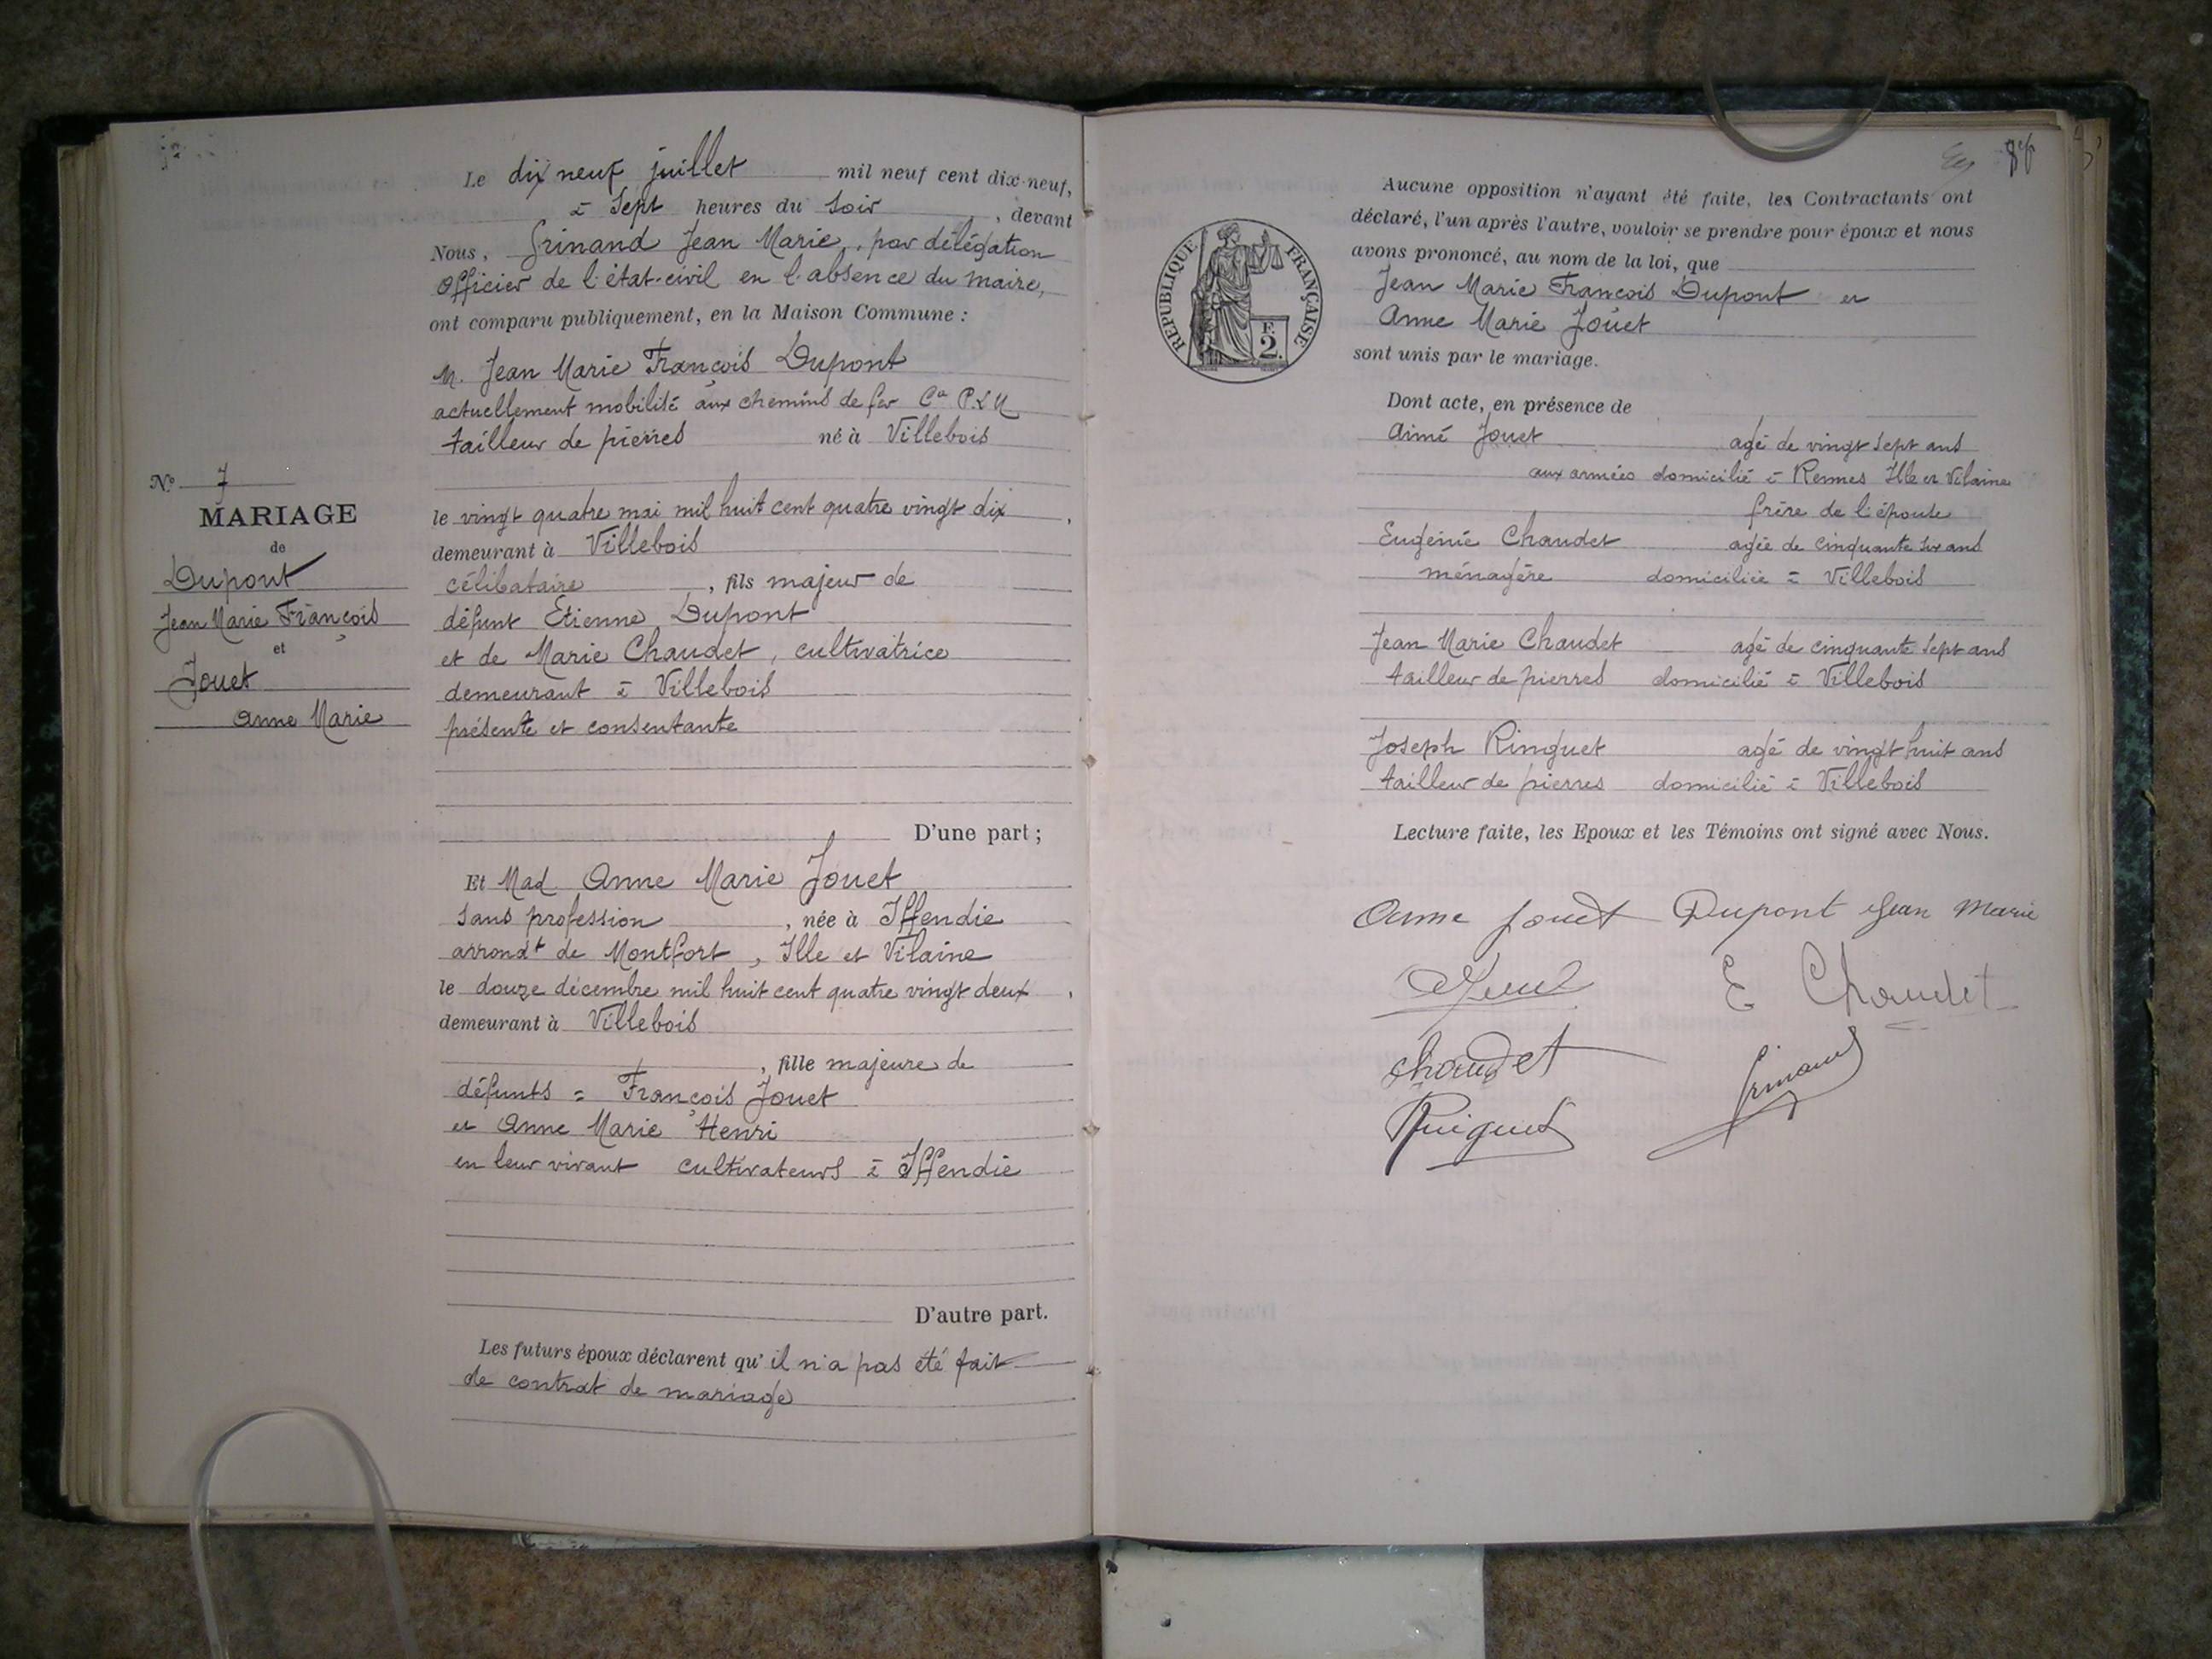 Le dix neuf juillet mil neuf cent dix-neuf,
à sept heures du soir, devant
Nous, Grinand Jean Marie, par délégation
officier de l'état-civil en l'absence du maire,
ont comparu publiquement, en la Maison Commune :
M. Jean Marie François Dupont
actuellement mobilisé aux chemins de fer Cie P.L.M
tailleur de pierres né à Villebois
le vingt quatre mai mil huit cent quatre vingt dix,
demeurant à Villebois
célibataire, fils majeur de
défunt Etienne Dupont
et de Marie Chaudet, cultivatrice
demeurant à Villebois
présente et consentante
D'une part ;
Et Mad. Anne Marie Jouet
sans profession, née à Iffendic
arrondt de Montfort, Ille et Vilaine
le douze décembre mil huit cent quatre vingt deux,
demeurant à Villebois
, fille majeure de
défunts = François Jouet
et Anne Marie Henri
en leur vivant cultivateurs à Iffendic
D'autre part.
Les futurs époux déclarent qu'il n'a pas été fait
de contrat de mariage
No 7
MARIAGE
de
Dupont
Jean Marie François
et
Jouet
Anne Marie
RÉPUBLIQUE FRANÇAISE
F.
2.
Aucune opposition n'ayant été faite, les Contractants ont
déclaré, l'un après l'autre, vouloir se prendre pour époux et nous
avons prononcé, au nom de la loi, que
Jean Marie François Dupont et
Anne Marie Jouet
sont unis par le mariage.
Dont acte, en présence de
Aimé Jouet agé de vingt sept ans
aux armées domicilié à Rennes Ille et Vilaine
frère de l'épouse
Eugénie Chaudet agée de cinquante six ans
ménagère domiciliée à Villebois
Jean Marie Chaudet agé de cinquante sept ans
tailleur de pierres domicilié à Villebois
Joseph Ringuet agé de vingt huit ans
tailleur de pierres domicilié à Villebois
Lecture faite, les Epoux et les Témoins ont signé avec Nous.
Anne Jouet Dupont Jean Marie
E Chaudet
Chaudet Grinand
Ringuet